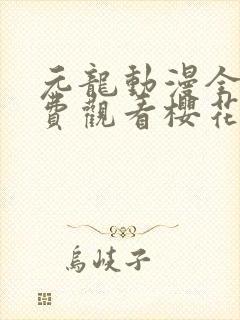 元龍動漫全
費觀看櫻花
烏峽子